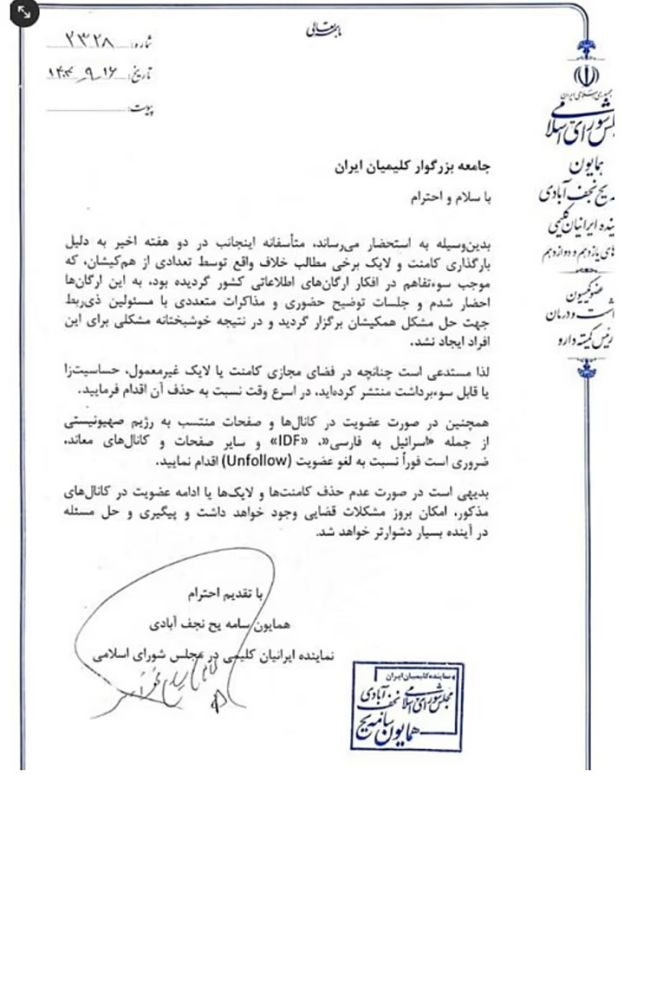 باسمه‌تعالی
شماره: ۲۳۲۸
تاریخ: ۱۴۰۴-۹-۱۶
پیوست:
جمهوری اسلامی ایران
مجلس شورای اسلامی
همایون
یح نجف آبادی
ینده ایرانیان کلیمی
های یازدهم و دوازدهم
عضو کمیسیون
اشت و درمان
رئیس کمیته دارو
جامعه بزرگوار کلیمیان ایران
با سلام و احترام
بدین‌وسیله به استحضار می‌رساند، متأسفانه اینجانب در دو هفته اخیر به دلیل
بارگذاری کامنت و لایک برخی مطالب خلاف واقع توسط تعدادی از هم‌کیشان، که
موجب سوء‌تفاهم در افکار ارگان‌های اطلاعاتی کشور گردیده بود، به این ارگان‌ها
احضار شدم و جلسات توضیح حضوری و مذاکرات متعددی با مسئولین ذی‌ربط
جهت حل مشکل همکیشان برگزار گردید و در نتیجه خوشبختانه مشکلی برای این
افراد ایجاد نشد.
لذا مستدعی است چنانچه در فضای مجازی کامنت یا لایک غیرمعمول، حساسیت‌زا
یا قابل سوء‌برداشت منتشر کرده‌اید، در اسرع وقت نسبت به حذف آن اقدام فرمایید.
همچنین در صورت عضویت در کانال‌ها و صفحات منتسب به رژیم صهیونیستی
از جمله «اسرائیل به فارسی»، «IDF» و سایر صفحات و کانال‌های معاند،
ضروری است فوراً نسبت به لغو عضویت (Unfollow) اقدام نمایید.
بدیهی است در صورت عدم حذف کامنت‌ها و لایک‌ها یا ادامه عضویت در کانال‌های
مذکور، امکان بروز مشکلات قضایی وجود خواهد داشت و پیگیری و حل مسئله
در آینده بسیار دشوارتر خواهد شد.
با تقدیم احترام
همایون سامه یح نجف آبادی
نماینده ایرانیان کلیمی در مجلس شورای اسلامی
نماینده کلیمیان ایران
مجلس شورای اسلامی
نجف آبادی
همایون سامه یح